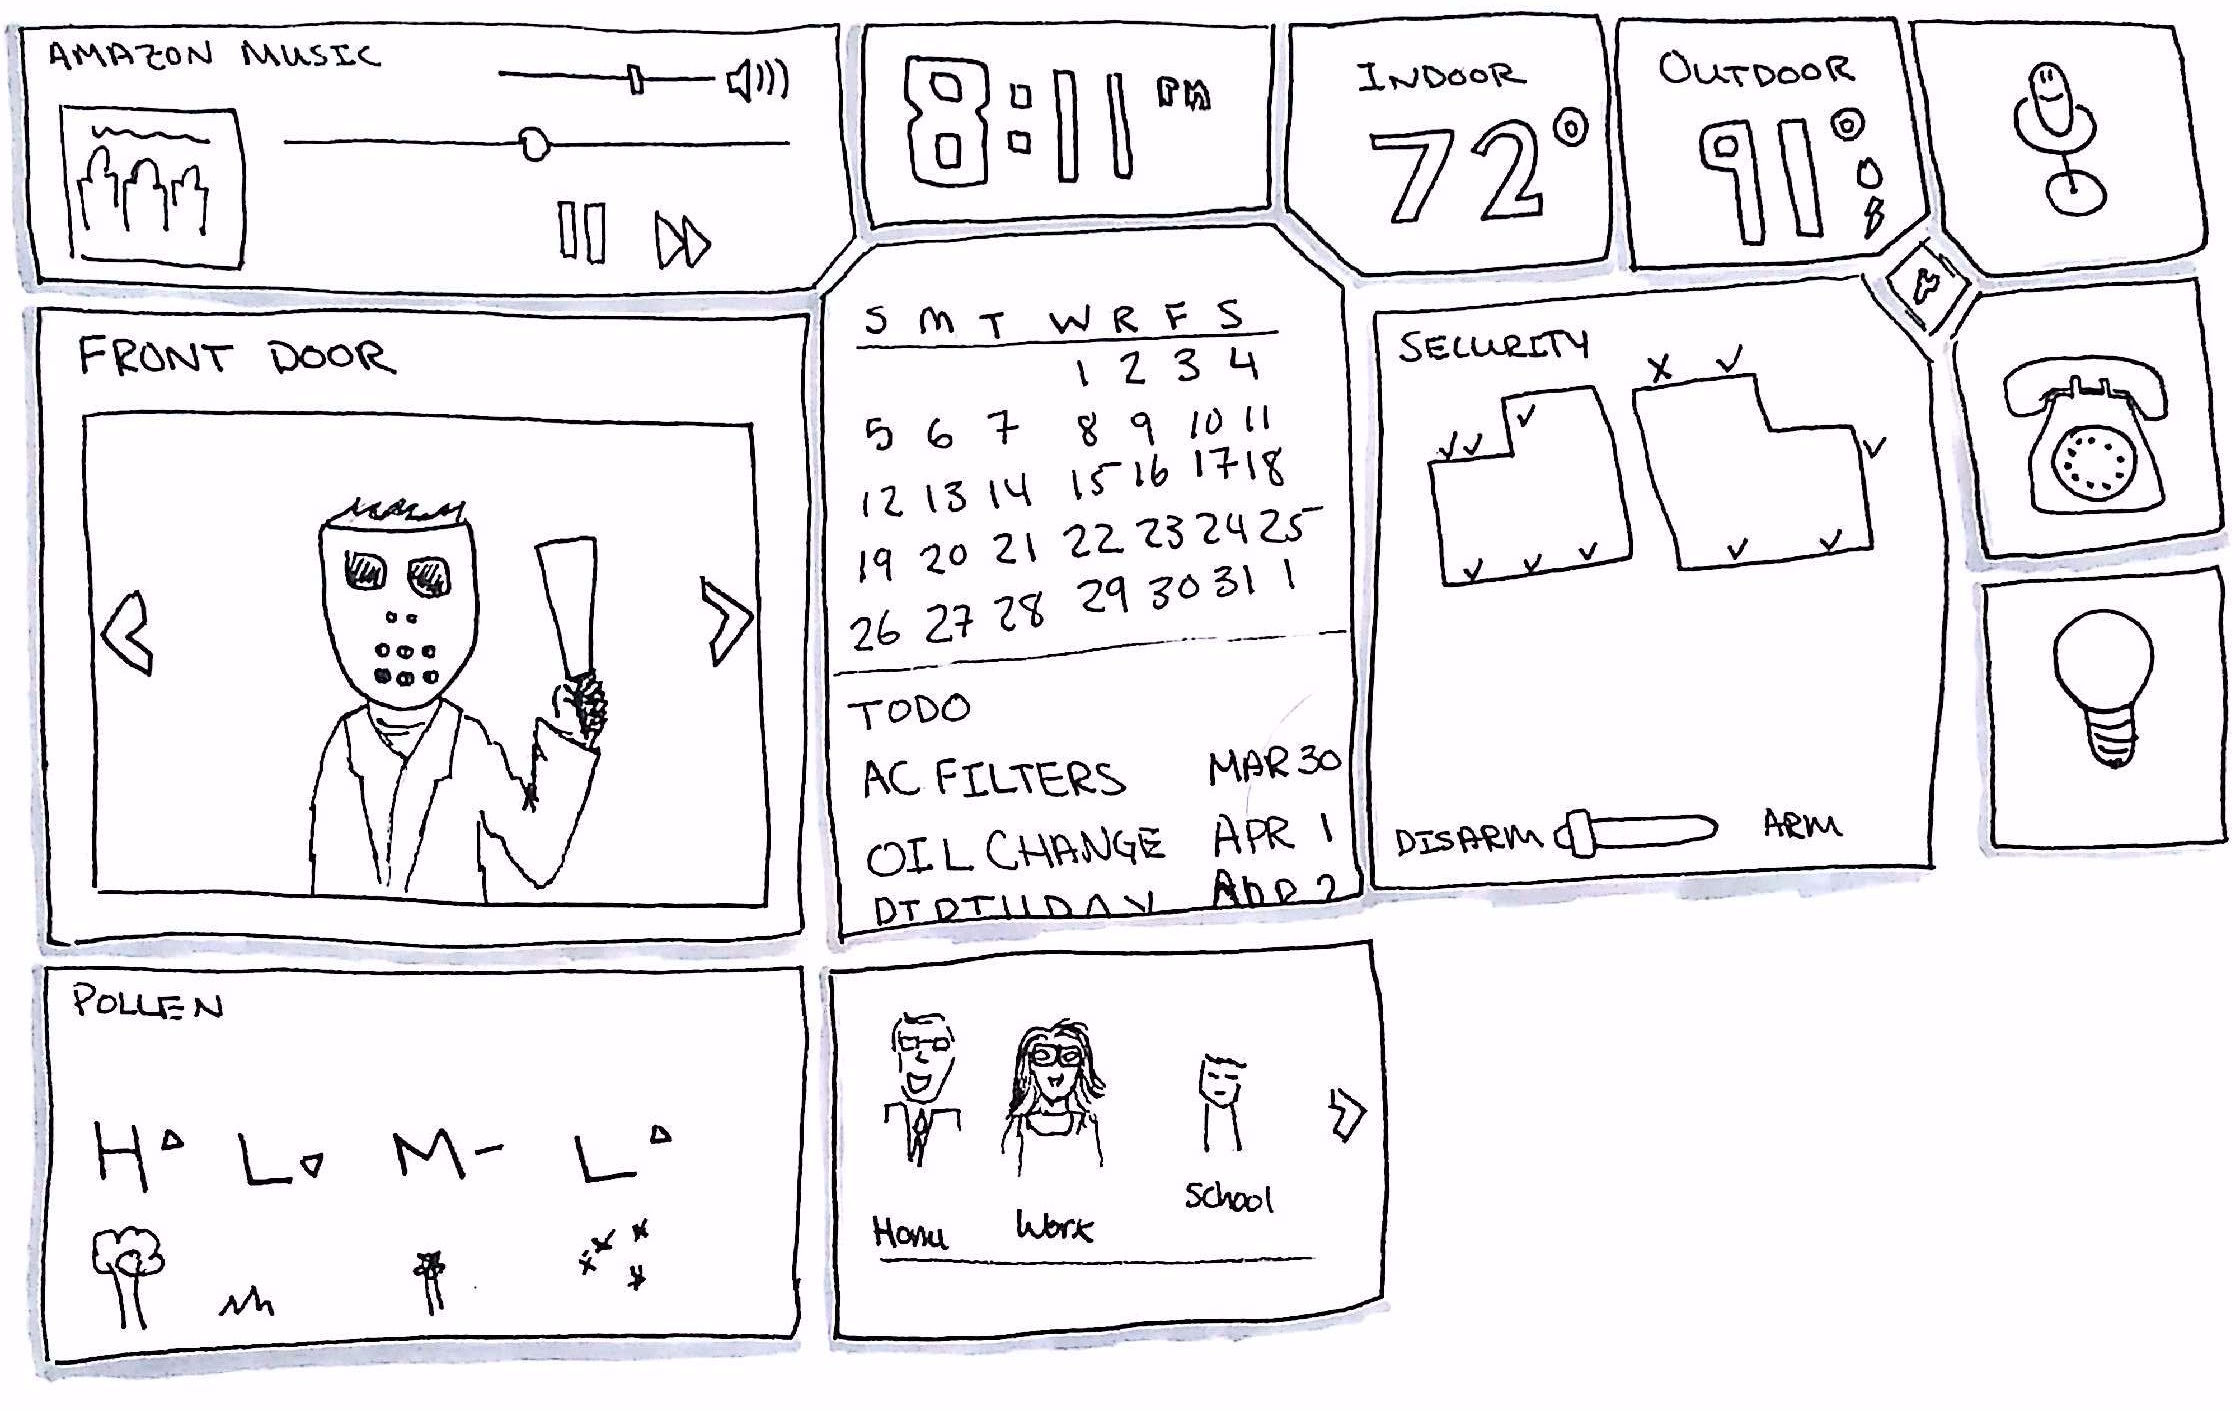 AMAZON MUSIC
8:11 PM
INDOOR
72°
OUTDOOR
91°
FRONT DOOR
S M T W R F S
1 2 3 4
5 6 7 8 9 10 11
12 13 14 15 16 17 18
19 20 21 22 23 24 25
26 27 28 29 30 31 1
TODO
AC FILTERS MAR 30
OIL CHANGE APR 1
BIRTHDAY APR 2
SECURITY
X ✓
✓ ✓ ✓ ✓
✓ ✓ ✓ ✓ ✓
DISARM ARM
POLLEN
H L M - L
Home Work School